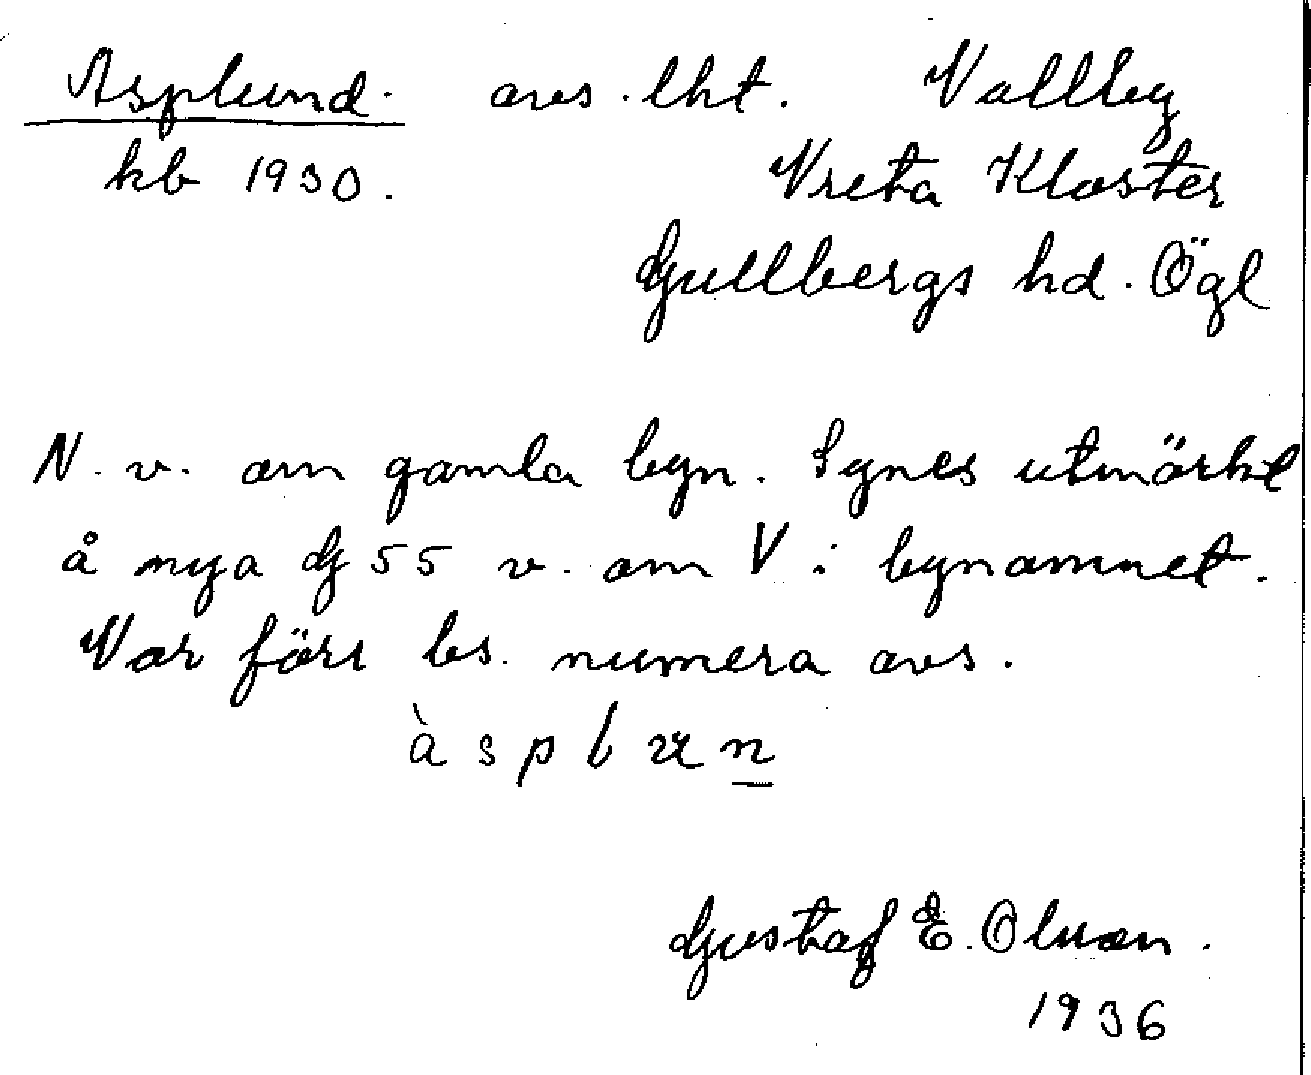 Asplund. avs. lht. Vallby
kb 1930. Vreta Kloster
Gullbergs hd. Ögl
N. v. om gamla byn. Synes utmärkt
å nya G 55 v. om V i bynamnet.
Var förr bs. numera avs.
àsplun
Gustaf E. Olsson.
1936